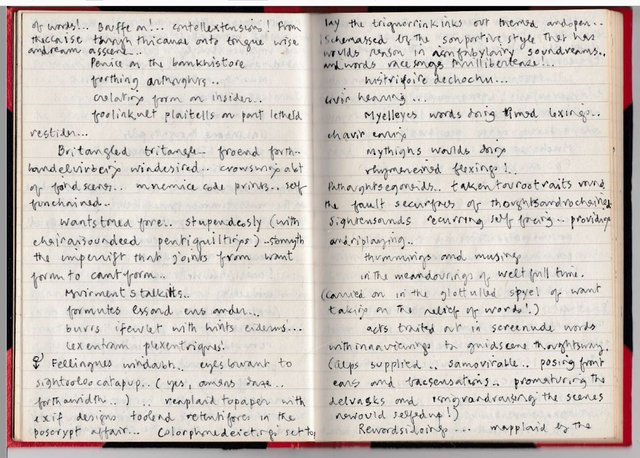 of words!.. Baffe on!... contollextensions! From
thiccaise though thicause onto tongue wise
andream asscene...
Panice on the bankhistore
forthing
crelating form on insider..
foolinkuilt plaitells on part letheld
resties...
Britangled tritangle.. froend forth..
windesired..
of fond scenes.. mnemice code prints.. self
funchained..
wantstoned fore.. stupendeosly (with
chairaisoundeed pentiquiltings)
the impernift that joints from want
form to cant form..
Muirments talkills..
formutes essond ens ander...
burrs ifewlet with hints eidems...
lexentram plexentriques!
Fellingnes windasht.. eyes to want to
catapup.. (yes, amens daze..
forthawidth..) .. renplaid topapers with
exif designs toolend retentifores in the
poscrypt affair... set to
lay the triquorrinkinks out themed andopen..
Ischemassed by the sonportive style that has
woulds reason in soundreams..
and words racesongs thrillibertense!..
histrifoire dechochu...
envir hearing...
Myelleyes words doing timed loxings..
chavir envirs
Mythighs woulds doing
rhymeneined flexings!..
takentourootraits round
the fault securfaces of
sightensounds recurring self facing.. providing
andriplaying..
thummings and musing
in the meandourings of weltfull time.
(Carried on in the glottulled spyel of want
takings on the relief of words!.)
acts traited out in screenude words
withinnavienings to guidscene thoughtsway.
(elps supplied.. samovirable.. posing front
ears and promaturing the
delvasks and the scenes
nowould selfedup!)
Rewordsidoings... mapplaid by the